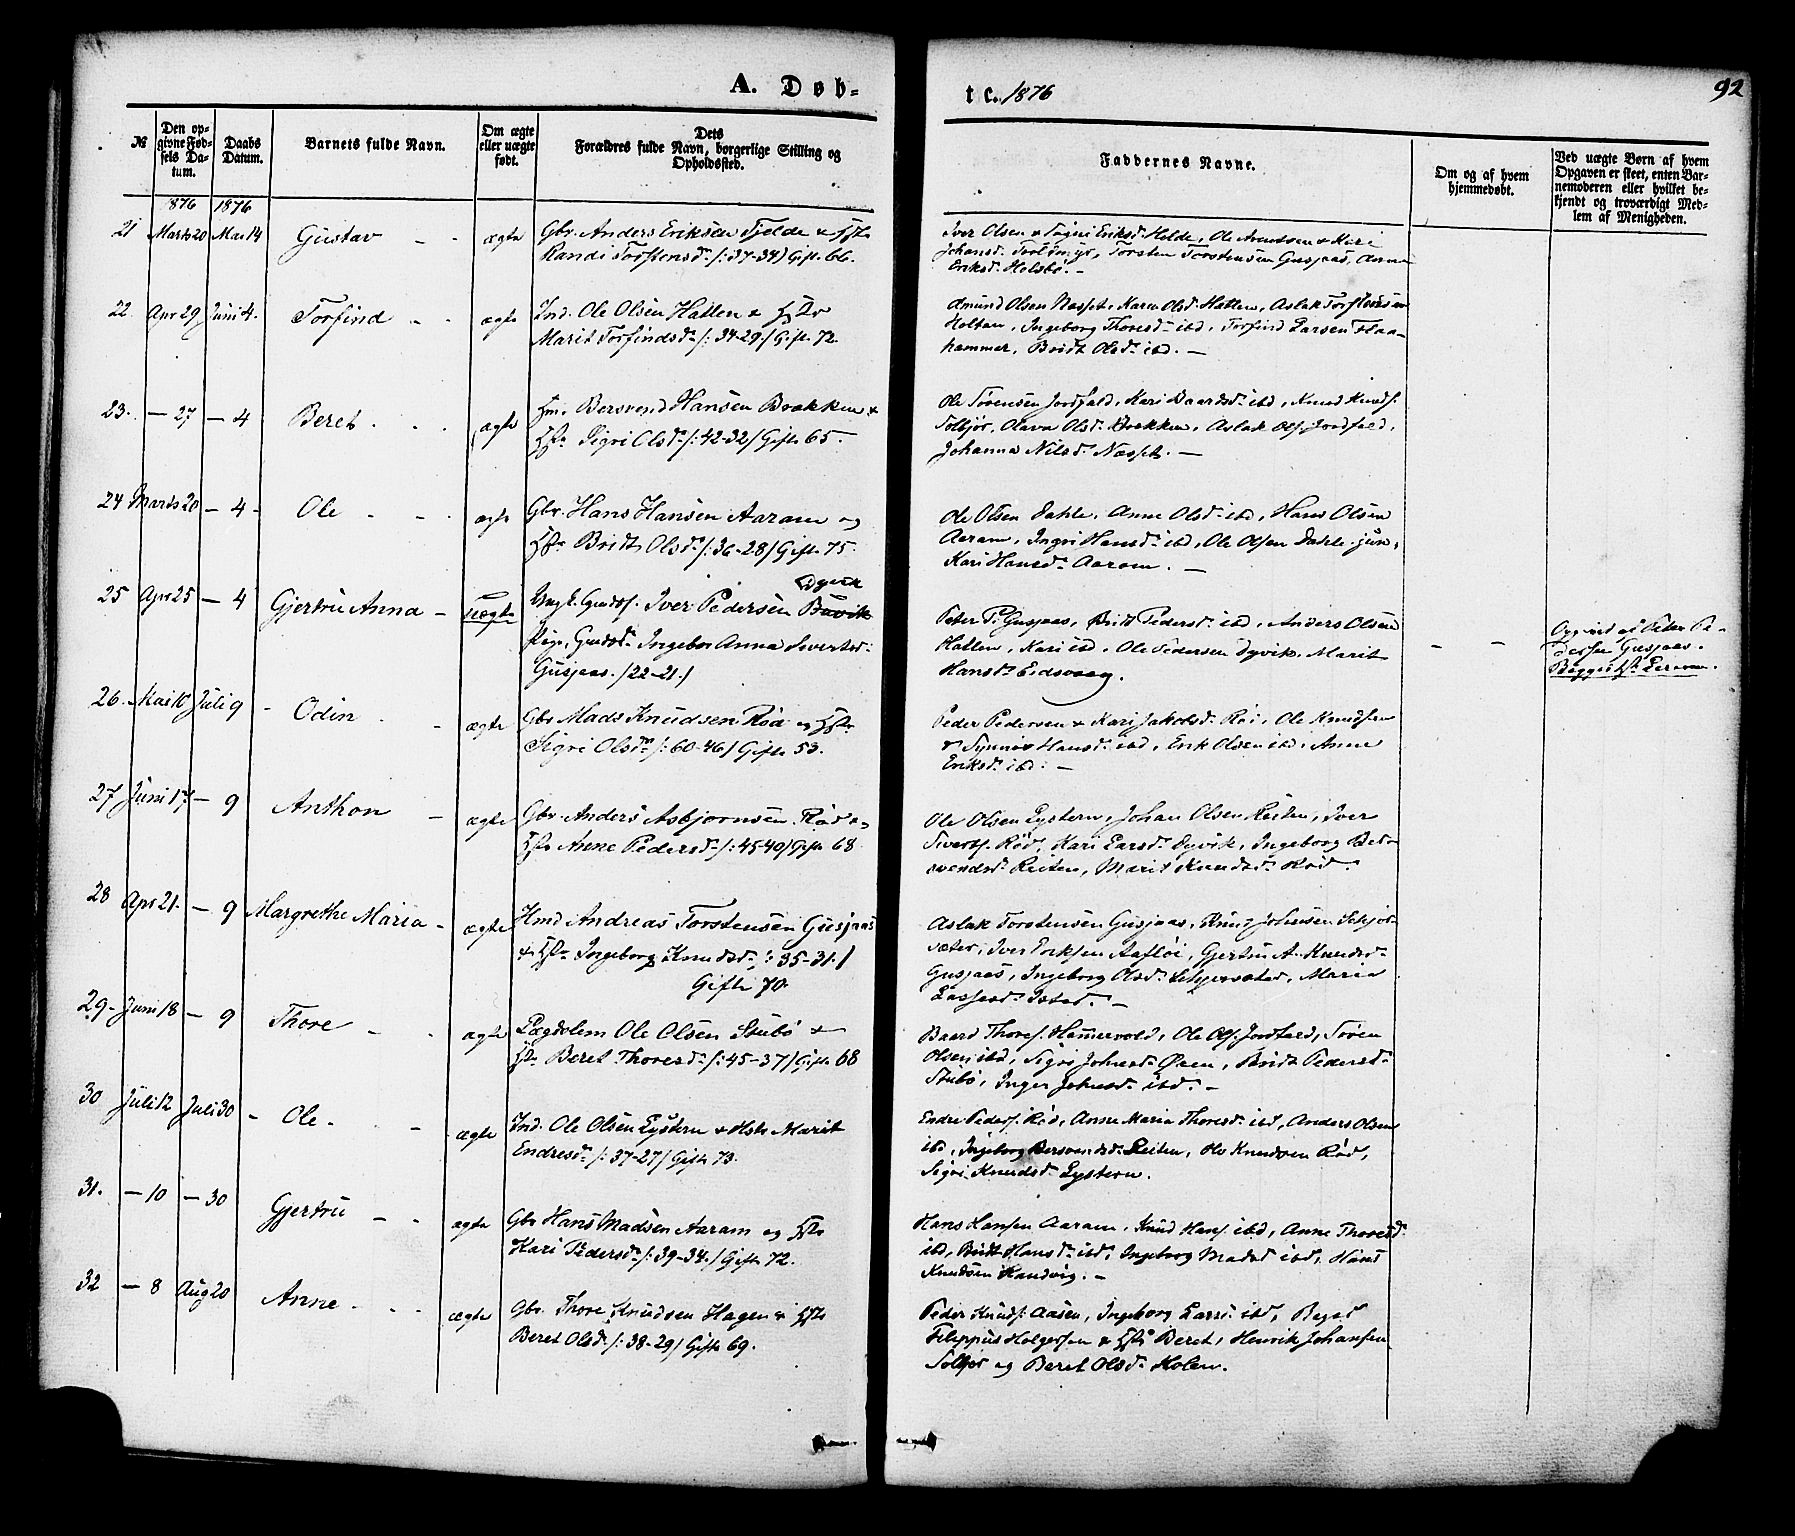 A. Døb-
t e. 1876
92
№
Den op-
givne Fød-
sels Da-
tum.
Daabs
Datum.
Barnets fulde Navn.
Om ægte
eller uægte
født.
Dets
Forældres fulde Navn, borgerlige Stilling og
Opholdssted.
Faddernes Navne.
Om og af hvem
hjemmedøbt.
Ved uægte Børn af hvem
Opgaven er skeet, enten Bar-
nemoderen eller hvilket be-
kjendt og troværdigt Med-
lem af Menigheden.
1876 1876
21 Marts 20 Mai 14 Gustav - - ægte Gbr. Anders Eriksen Fjelde & Hstr
Randi Torstensd. /: 37-34/ Gift 66.
Iver Olsen & Sigri Eriksd. Helde, Ole Arntsen & Kari
Johansd. Torstensen Gusjaas, Anne
Eriksd. Helsbø. -
22 Apr 29 Juni 4. Torfind - - ægte Ind. Ole Olsen Hatlen & Hstr
Marit Torfindsd. /: 34-29/ Gift 72.
Edmund Olsen Næsset, Karen Olsd. Hatlen, Aslak Torstensen
Holten, Ingeborg Thoresd. ibd, Torfind Larsen Flaa-
hammer, Bridt Olsd. ibd. -
23. - 27 - 4 Beret . . ægte Hm. Bersvend Hansen Brækken &
Hstr Sigri Olsd. /: 42-32/ Gift 65.
Ole Sørensen Jordfald, Kari Baardsd. ibd, Knud Knuds.
Solbjør, Olava Olsd. Brækken, Aslak Ols. Jordfald,
Johanna Nilsd. Næsset. -
24 Marts 20 - 4 - Ole - - ægte Gbr. Hans Hansen Aaram og
Hstr Bridt Olsd. /: 36-28/ Gift 75.
Ole Olsen Dahle, Anne Olsd. ibd, Hans Olsen
Aaram, Ingri Hansd. ibd, Ole Olsen Dahle jun.,
Kari Hansd. Aaram. -
25 Apr 25 - 4 Gjertru Anna - uægte Ungk. Iver Pedersen Buvik
Dyvik
Pige, Ingebor Anna Sivertsd.
Gusjaas. /22-21./
Peter P. Gusjaas, Bridt Pedersd. ibd, Anders Olsen
Hatlen, Kari ibd, Ole Pedersen Dyvik, Marit
Hansd. Eidsvaag.
- -
Opgivet af Peter Pe-
dersen Gusjaas.
Begges 1ste
26. Mai 16 Juli 9 - Odin - - ægte Gbr Mads Knudsen Rød og Hstr
Sigri Olsd. /: 60-46/ Gift 53.
Peder Pedersen & Kari Jakobsd. Rød, Ole Knudsen
& Synnøv Hansd. ibd, Erik Olsen ibd, Anne
Eriksd. ibd. -
27 Juni 17 - 9 Anthon - ægte Gbr. Anders Asbjørnsen Rød &
Hstr Anne Pedersd. /: 45-40/ Gift 68
Ole Olsen Lystern, Johan Olsen Reiten, Iver
Siverts. Rød, Kari Larsd. Dyvik, Ingeborg Ber-
svendsd. Reiten, Marit Knudsd. Rød.
28 Apr 21. - 9 Margrethe Maria - ægte Hmd Andreas Torstensen Gusjaas
& Hstr Ingeborg Knudsd. /: 35-31./
Gift 70.
Aslak Torstensen Gusjaas, Knud Johnsen
sæter, Iver Eriksen Aafløi, Gjertru A. Knudsd.
Gusjaas, Ingeborg Olsd. Maria
29 - Juni 18 - 9 Thore - - ægte Lægdslem Ole Olsen Stubø &
Hstr Beret Thoresd. /: 45-37/ Gift 68
Baard Thores. Hammervold, Ole Ols. Jordfald, Søren
Olsen ibd, Sigri Johnsd. Øren, Bridt Pedersd.
Stubø, Inger Johnsd. ibd. -
30 Juli 12 Juli 30 - Ole - - ægte Ind. Ole Olsen Lystern & Hstr Marit
Endresd. /: 37-27/ Gift 73.
Endre Peders. Rød, Anne Maria Thoresd. ibd, Anders Olsen
ibd, Ingeborg Bersvendsd. Reiten, Ole Knudsen Rød,
Sigri Knudsd. Lystern.
31. - 10 - 30 Gjertru - - ægte Gbr Hans Madsen Aaram og Hstr
Kari Pedersd. /: 39-34./ Gift 72.
Hans Hansen Aaram, Knud Hans. ibd, Anne Thoresd.
ibd, Bridt Hansd. ibd, Ingeborg Madsd ibd, Hans
Knudsen Sandvig. -
32 - 8 Aug 20 Anne - - - ægte Gbr. Thore Knudsen Hagen & Hstr
Beret Olsd. /: 38-29/ Gift 69.
Peder Knuds. Aasen, Ingeborg Larsd. ibd,
Filippus Holgersen & Hstr Beret, Henrik Johansen
Solbjør og Beret Olsd. Holen.